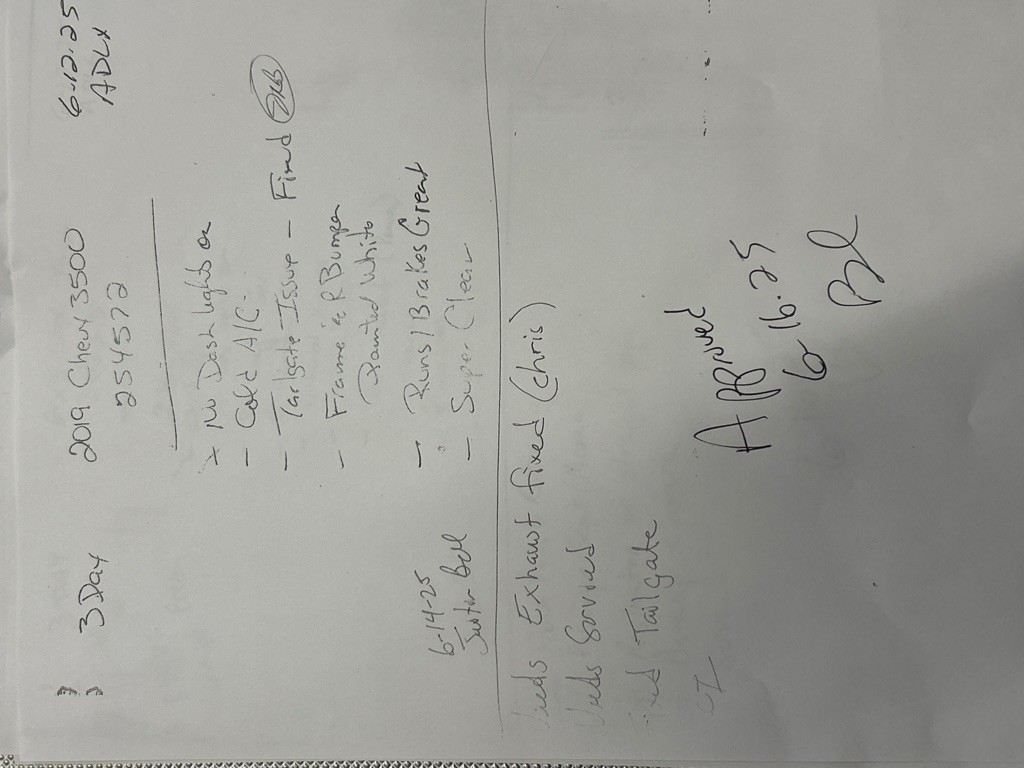 3 Day 2019 Chevy 3500 6-12-25
254572 ADLX
No Dash Lights on
- Cold A/C.
- Tailgate Issue - Fixed
- Frame & R Bumper
Painted White
- Runs / Brakes Great
- Super Clean
6-14-25
Needs Exhaust fixed (Chris)
Needs Serviced
Fixed Tailgate
Approved
6-16-25